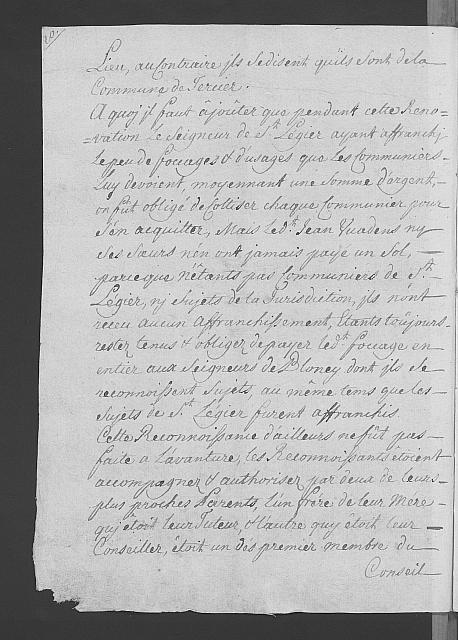 20.
Lieu, au Contraire jls se disent qu'ils sont de la
Commune de Tercier.
A quoj il faut àjoûter que pendant cette Reno=
=vation le Seigneur de St. Légier ayant affranchj
le peu de fouages & d'usages que les Communiers
Luy devoient, moyennant une somme d'argent,
on fut obligé de Cottiser chaque Communier pour
s'én acquitter, Mais led.t Jean Quadens ny
ses sœurs n'én ont jamais payé un sol,
parce que N'êtants pas Communiers de St.
Légier, nj sujets de la Jurisdiction, jls n'ont
receu aucun affranchissement, Etants toûjours
restez tenus & obligez de payer led.t fouage en
entier aux Seigneurs de Bloney dont jls se
reconnoissent sujets, au même tems que les
sujets de St. Légier furent affranchis.
Cette Reconnoissance d'ailleurs ne fût pas
faite a L'avanture, les Reconnoissants étoient
accompagnez & authorisez par deux de leurs
plus proches Parents, L'un frere de leur Mere
quj êtoit leur Tuteur, & l'autre quy étoit leur
Conseiller, êtoit un des premier membre du
Conseil